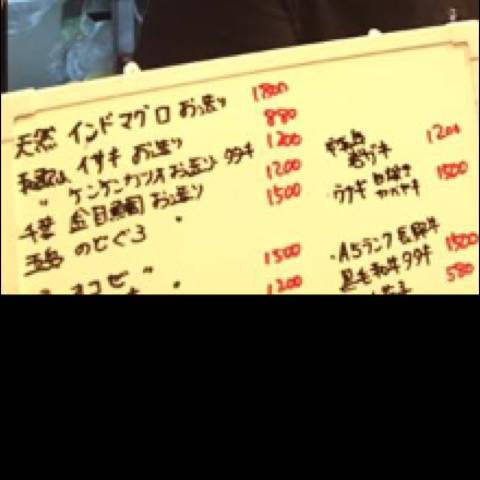 天然 インドマグロ お造り 1800
和歌山 イサキ お造り 880
〃 ケンケンカツオ お造り タタキ 1200
千葉 金目鯛 お造り 1200
五島 のどぐろ 〃 1500
オコゼ 〃 1500
1200
岩ガキ 1200
ウナギ 白焼き カバヤキ 1500
・A5ランク 長崎牛
黒毛和牛タタキ 1500
580